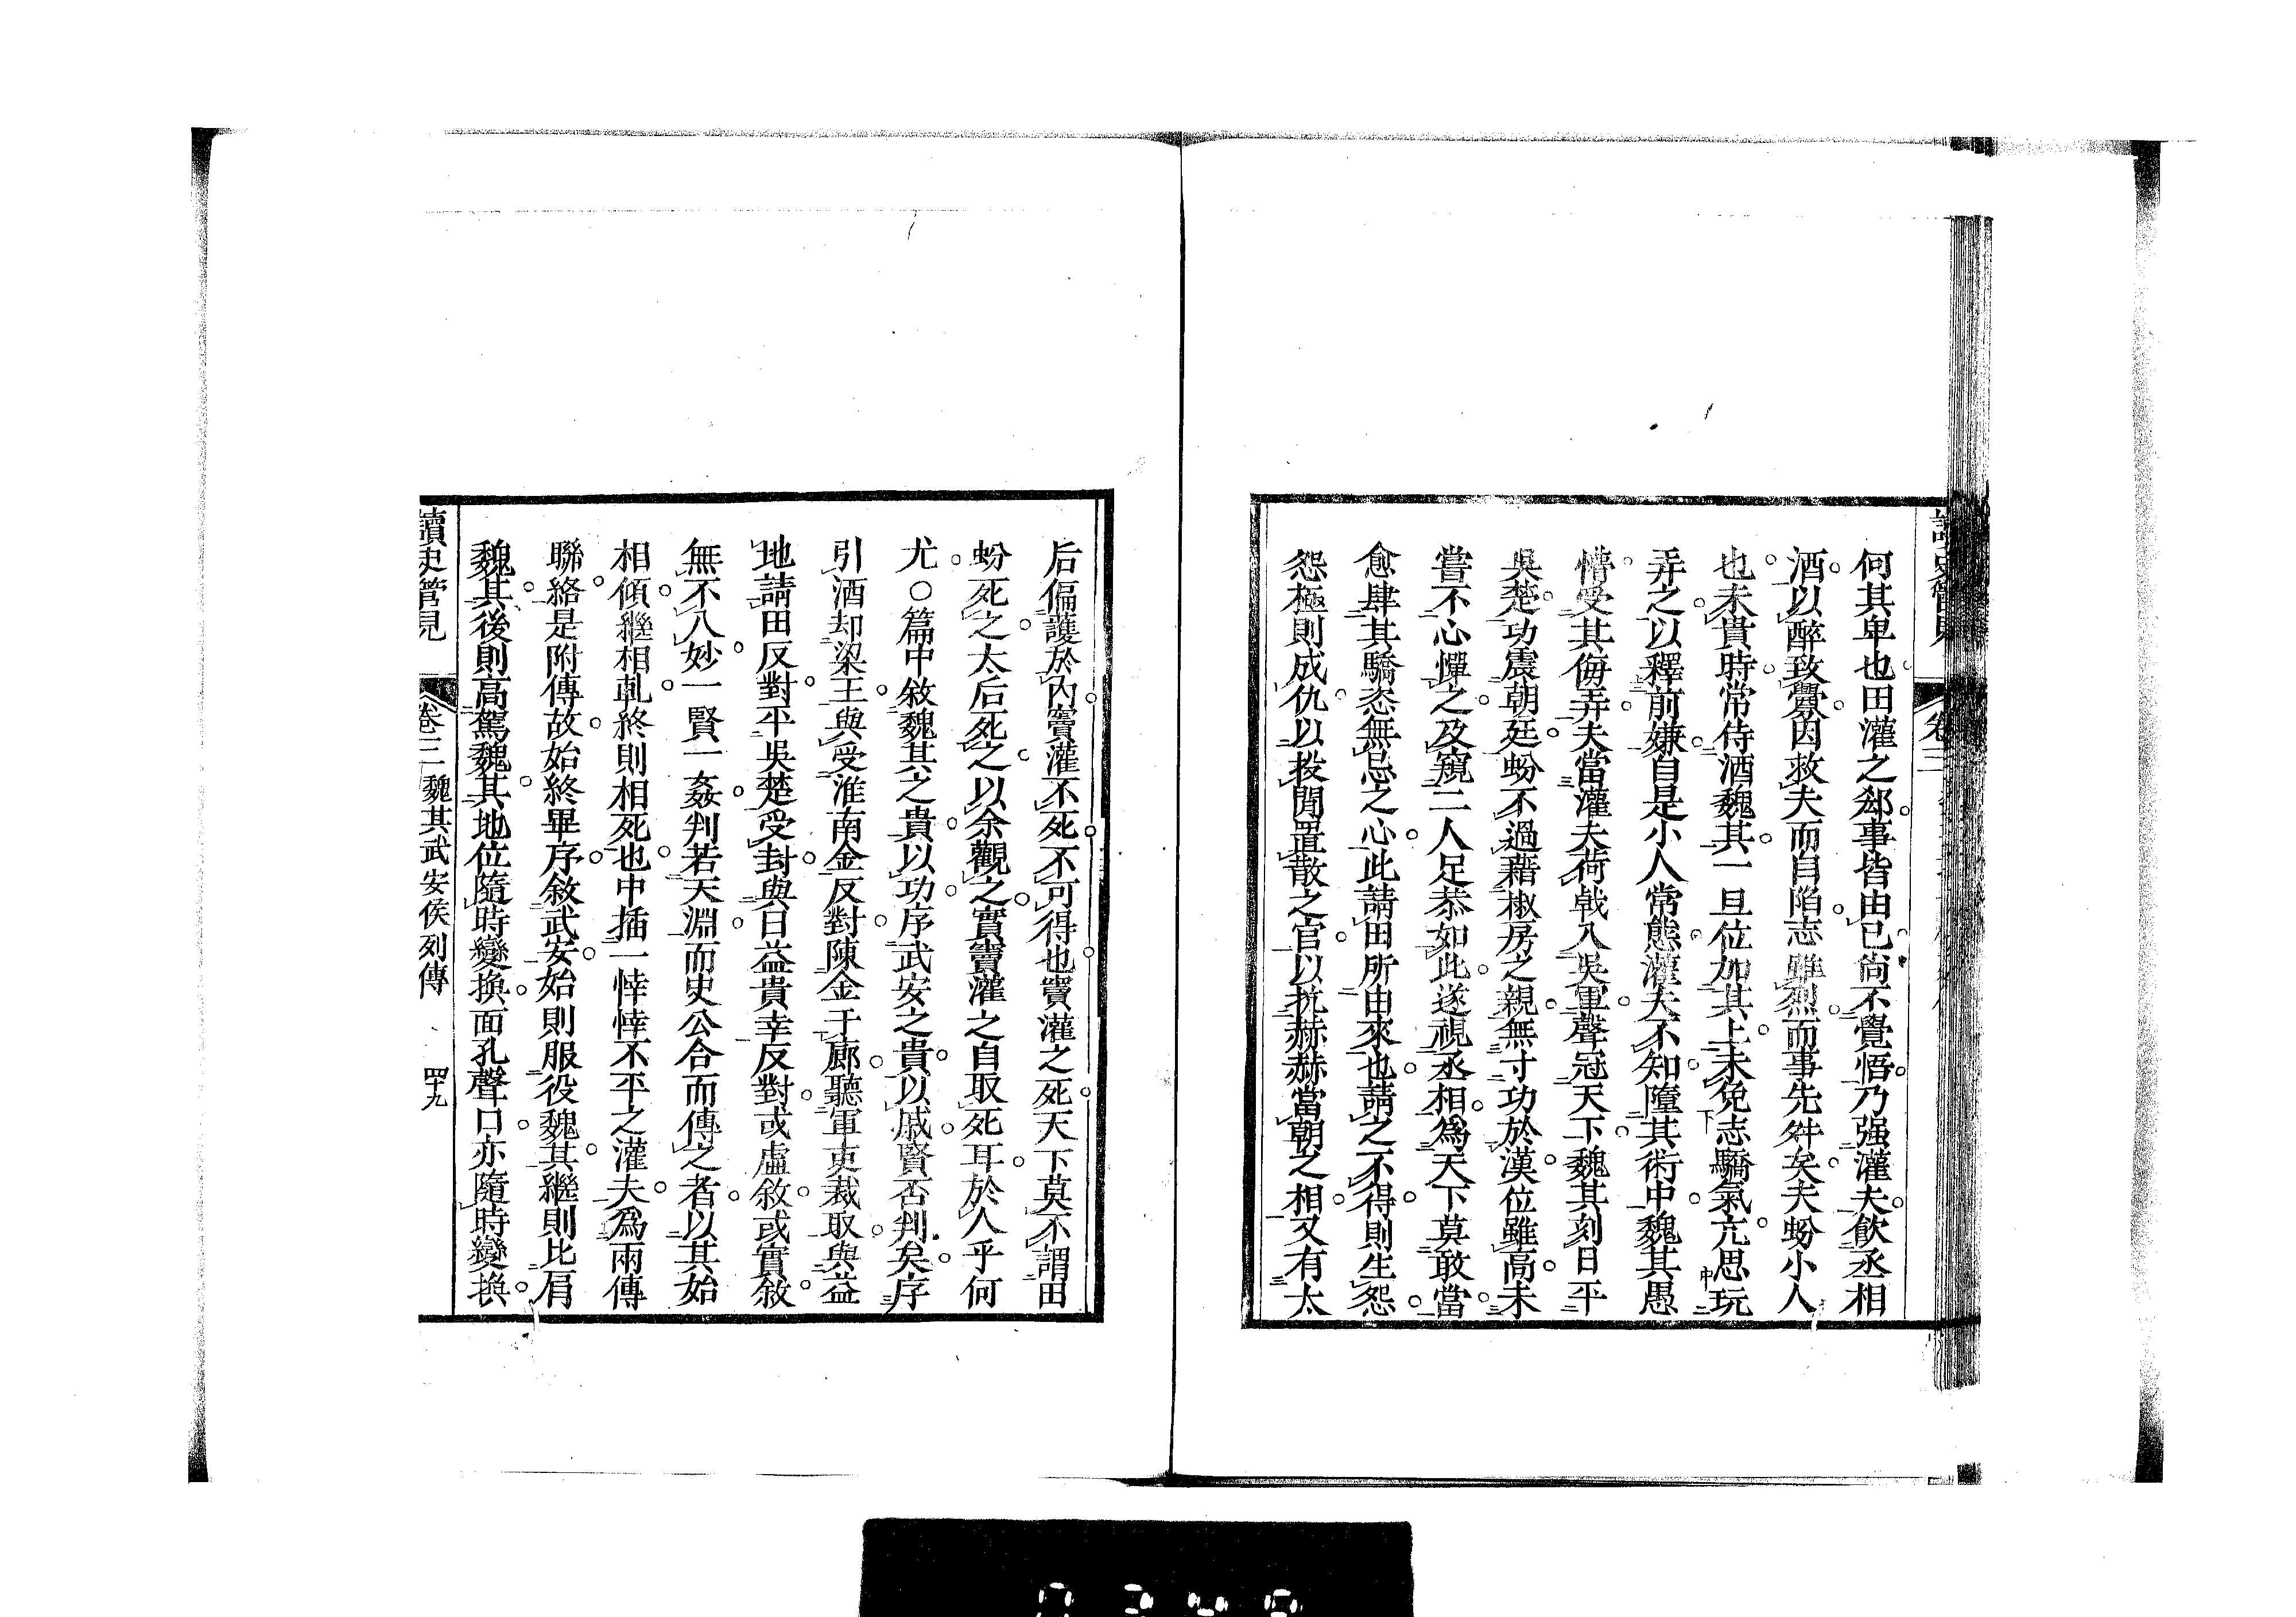 何其卑也田灌之郄事皆由已尙不覺悟乃强灌夫飮丞相
酒以醉致釁因救夫而自陷志雖烈而事先舛矣夫蚡小人
也未貴時常侍酒魏其一旦位加其上未免志驕氣亢思玩
弄之以釋前嫌自是小人常態灌夫不知墮其術中魏其愚
懵受其侮弄夫當灌夫荷戟入吳軍聲冠天下魏其刻日平
吳楚功震朝廷蚡不過藉椒房之親無寸功於漢位雖高未
嘗不心憚之及窺二人足恭如此遂視丞相爲天下莫敢當
愈肆其驕恣無忌之心此請田所由來也請之不得則生怨
怨極則成仇以投閒置散之官以抗赫赫當朝之相又有太
后偏護於內竇灌不死不可得也竇灌之死天下莫不謂田
蚡死之太后死之以余觀之實竇灌之自取死耳於人乎何
尤○篇中敘魏其之貴以功序武安之貴以戚賢否判矣序
引酒却梁王與受淮南金反對陳金于廊聽軍吏裁取與益
地請田反對平吳楚受封與日益貴幸反對或虛敘或實敘
無不入妙一賢一姦判若天淵而史公合而傳之者以其始
相傾繼相軋終則相死也中插一悻悻不平之灌夫爲兩傳
聯絡是附傳故始終畢序敘武安始則服役魏其繼則比肩
魏其後則高駕魏其地位隨時變換面孔聲口亦隨時變換
讀史管見 卷三 魏其武安侯列傳 四十九